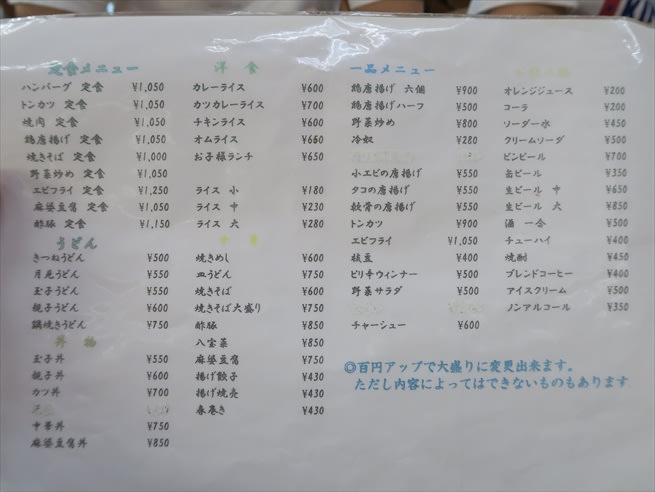 定食メニュー
ハンバーグ 定食 ¥1,050
トンカツ 定食 ¥1,050
焼肉 定食 ¥1,050
鶏唐揚げ 定食 ¥1,050
焼きそば 定食 ¥1,000
野菜炒め 定食 ¥1,050
エビフライ 定食 ¥1,250
麻婆豆腐 定食 ¥1,050
酢豚 定食 ¥1,150
うどん
きつねうどん ¥500
月見うどん ¥550
玉子うどん ¥550
親子うどん ¥600
鍋焼きうどん ¥750
丼物
玉子丼 ¥550
親子丼 ¥600
カツ丼 ¥700
中華丼 ¥750
麻婆豆腐丼 ¥850
洋食
カレーライス ¥600
カツカレーライス ¥700
チキンライス ¥600
オムライス ¥650
お子様ランチ ¥650
ライス 小 ¥180
ライス 中 ¥230
ライス 大 ¥280
中華
焼きめし ¥600
皿うどん ¥750
焼きそば ¥600
焼きそば大盛り ¥750
酢豚 ¥850
八宝菜 ¥850
麻婆豆腐 ¥750
揚げ餃子 ¥430
揚げ焼売 ¥430
春巻き ¥430
一品メニュー
鶏唐揚げ 六個 ¥900
鶏唐揚げハーフ ¥500
野菜炒め ¥800
冷奴 ¥280
小エビの唐揚げ ¥550
タコの唐揚げ ¥550
軟骨の唐揚げ ¥550
トンカツ ¥900
エビフライ ¥1,050
枝豆 ¥400
ピリ辛ウィンナー ¥500
野菜サラダ ¥500
チャーシュー ¥600
オレンジジュース ¥200
コーラ ¥200
ソーダー水 ¥450
クリームソーダ ¥500
ビンビール ¥700
缶ビール ¥350
生ビール 中 ¥650
生ビール 大 ¥850
酒 一合 ¥500
チューハイ ¥400
焼酎 ¥450
ブレンドコーヒー ¥400
アイスクリーム ¥500
ノンアルコール ¥350
◎百円アップで大盛りに変更出来ます。
ただし内容によってはできないものもあります